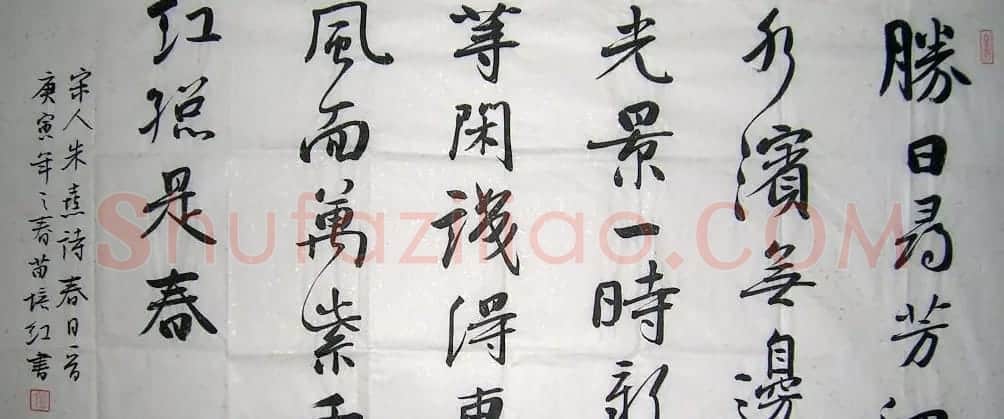 勝日尋芳泗
水濱無邊
光景一時新
等閑識得東
風面萬紫千
紅總是春
宋人朱熹詩春日一首
庚寅年之春苗培红書
Shufaziliao.COM